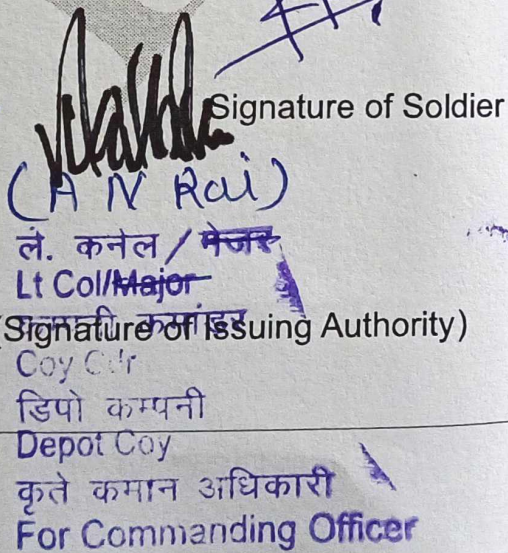 Signature of Soldier
(A N Rai)
ले. कर्नल / मेजर
Lt Col/Major
(Signature of Issuing Authority)
Coy Cdr
डिपो कम्पनी
Depot Coy
कृते कमान अधिकारी
For Commanding Officer